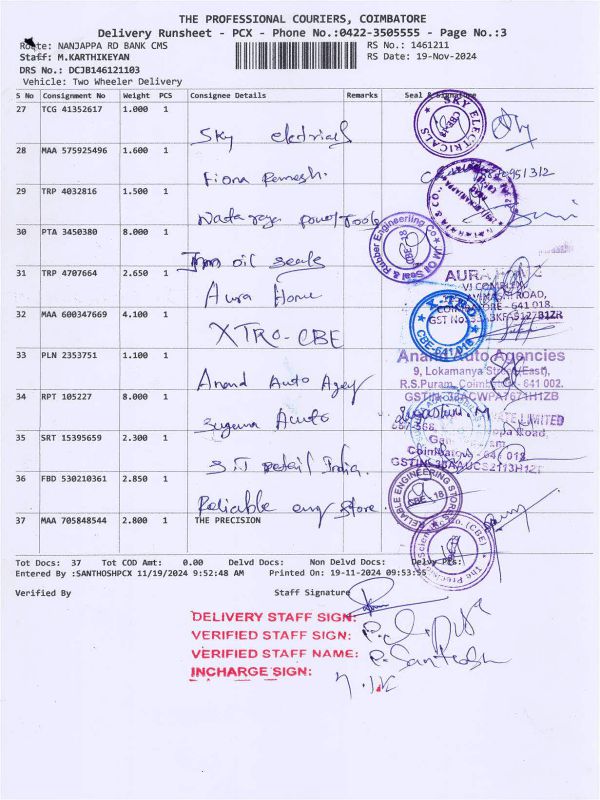 THE PROFESSIONAL COURIERS, COIMBATORE
Delivery Runsheet - PCX - Phone No.:0422-3505555 - Page No.:3
Route: NANJAPPA RD BANK CMS RS No.: 1461211
Staff: M.KARTHIKEYAN RS Date: 19-Nov-2024
DRS No.: DCJB146121103
Vehicle: Two Wheeler Delivery
S No Consignment No Weight PCS Consignee Details Remarks Seal & Signature
27 TCG 41352617 1.000 1
Sky electricals
SKY ELECTRICALS
28 MAA 575925496 1.600 1
Fiona Ramesh.
29 TRP 4032816 1.500 1
Nataraja power Tools
30 PTA 3450380 8.000 1
oil seals
JM Oil Seal & Rubber Engineering Co
31 TRP 4707664 2.650 1
Aura Home
AURA
VI COMPLEX
AVINASHI ROAD,
641 018.
32 MAA 600347669 4.100 1
XTRO-CBE
CBE-641 018
33 PLN 2353751 1.100 1
Anand Auto Agey
Anand Auto Agencies
9, Lokamanya Street (East),
R.S.Puram, Coimbatore - 641 002.
34 RPT 105227 8.000 1
Suguna Auto
35 SRT 15395659 2.300 1
retail India.
Coimbatore - 641 018
36 FBD 530210361 2.850 1
Reliable eng Store
RELIABLE ENGINEERING STORES
CBE - 18
37 MAA 705848544 2.800 1 THE PRECISION
The Precision Scientific Co. (CBE)
Tot Docs: 37 Tot COD Amt: 0.00 Delvd Docs: Non Delvd Docs: Delvy PCs:
Entered By :SANTHOSHPCX 11/19/2024 9:52:48 AM Printed On: 19-11-2024 09:53:55
Verified By Staff Signature
DELIVERY STAFF SIGN:
VERIFIED STAFF SIGN:
VERIFIED STAFF NAME: P. Santhosh
INCHARGE SIGN: